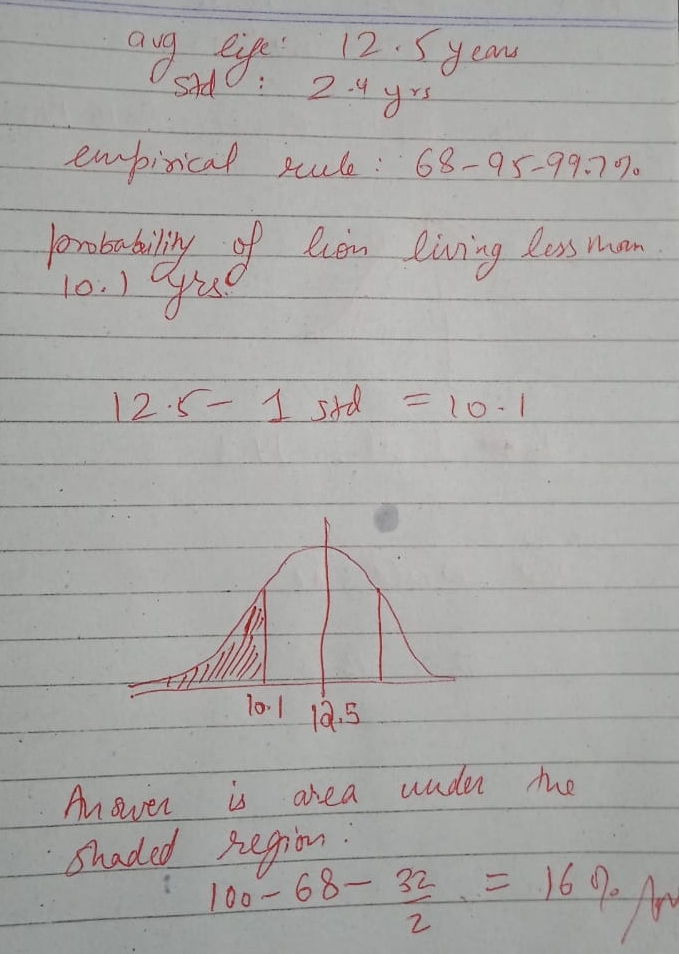 avg life: 12.5 years
std : 2.4 yrs
empirical rule: 68-95-99.7%
probability of lion living less than
10.1 yrs?
12.5 - 1 std = 10.1
10.1 12.5
Answer is area under the
shaded region.
100-68- 32/2 = 16% Ans